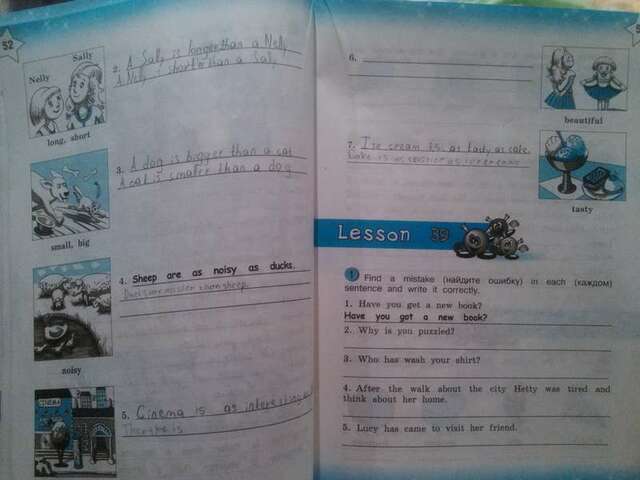 52
Nelly Sally
long, short
2. A Sally is longer than a Nelly
A Nelly is than a Sally
3. A dog is bigger than a cat
A cat is smaller than a dog
small, big
4. Sheep are as noisy as ducks.
than sheep.
noisy
CINEMA
5. Cinema is as interesting
is
6.
beautiful
7. Ice cream is as as cake.
is as as
tasty
Lesson 39
1 Find a mistake (найдите ошибку) in each (каждом)
sentence and write it correctly.
1. Have you get a new book?
Have you got a new book?
2. Why is you puzzled?
3. Who has wash your shirt?
4. After the walk about the city Hetty was tired and
think about her home.
5. Lucy has came to visit her friend.